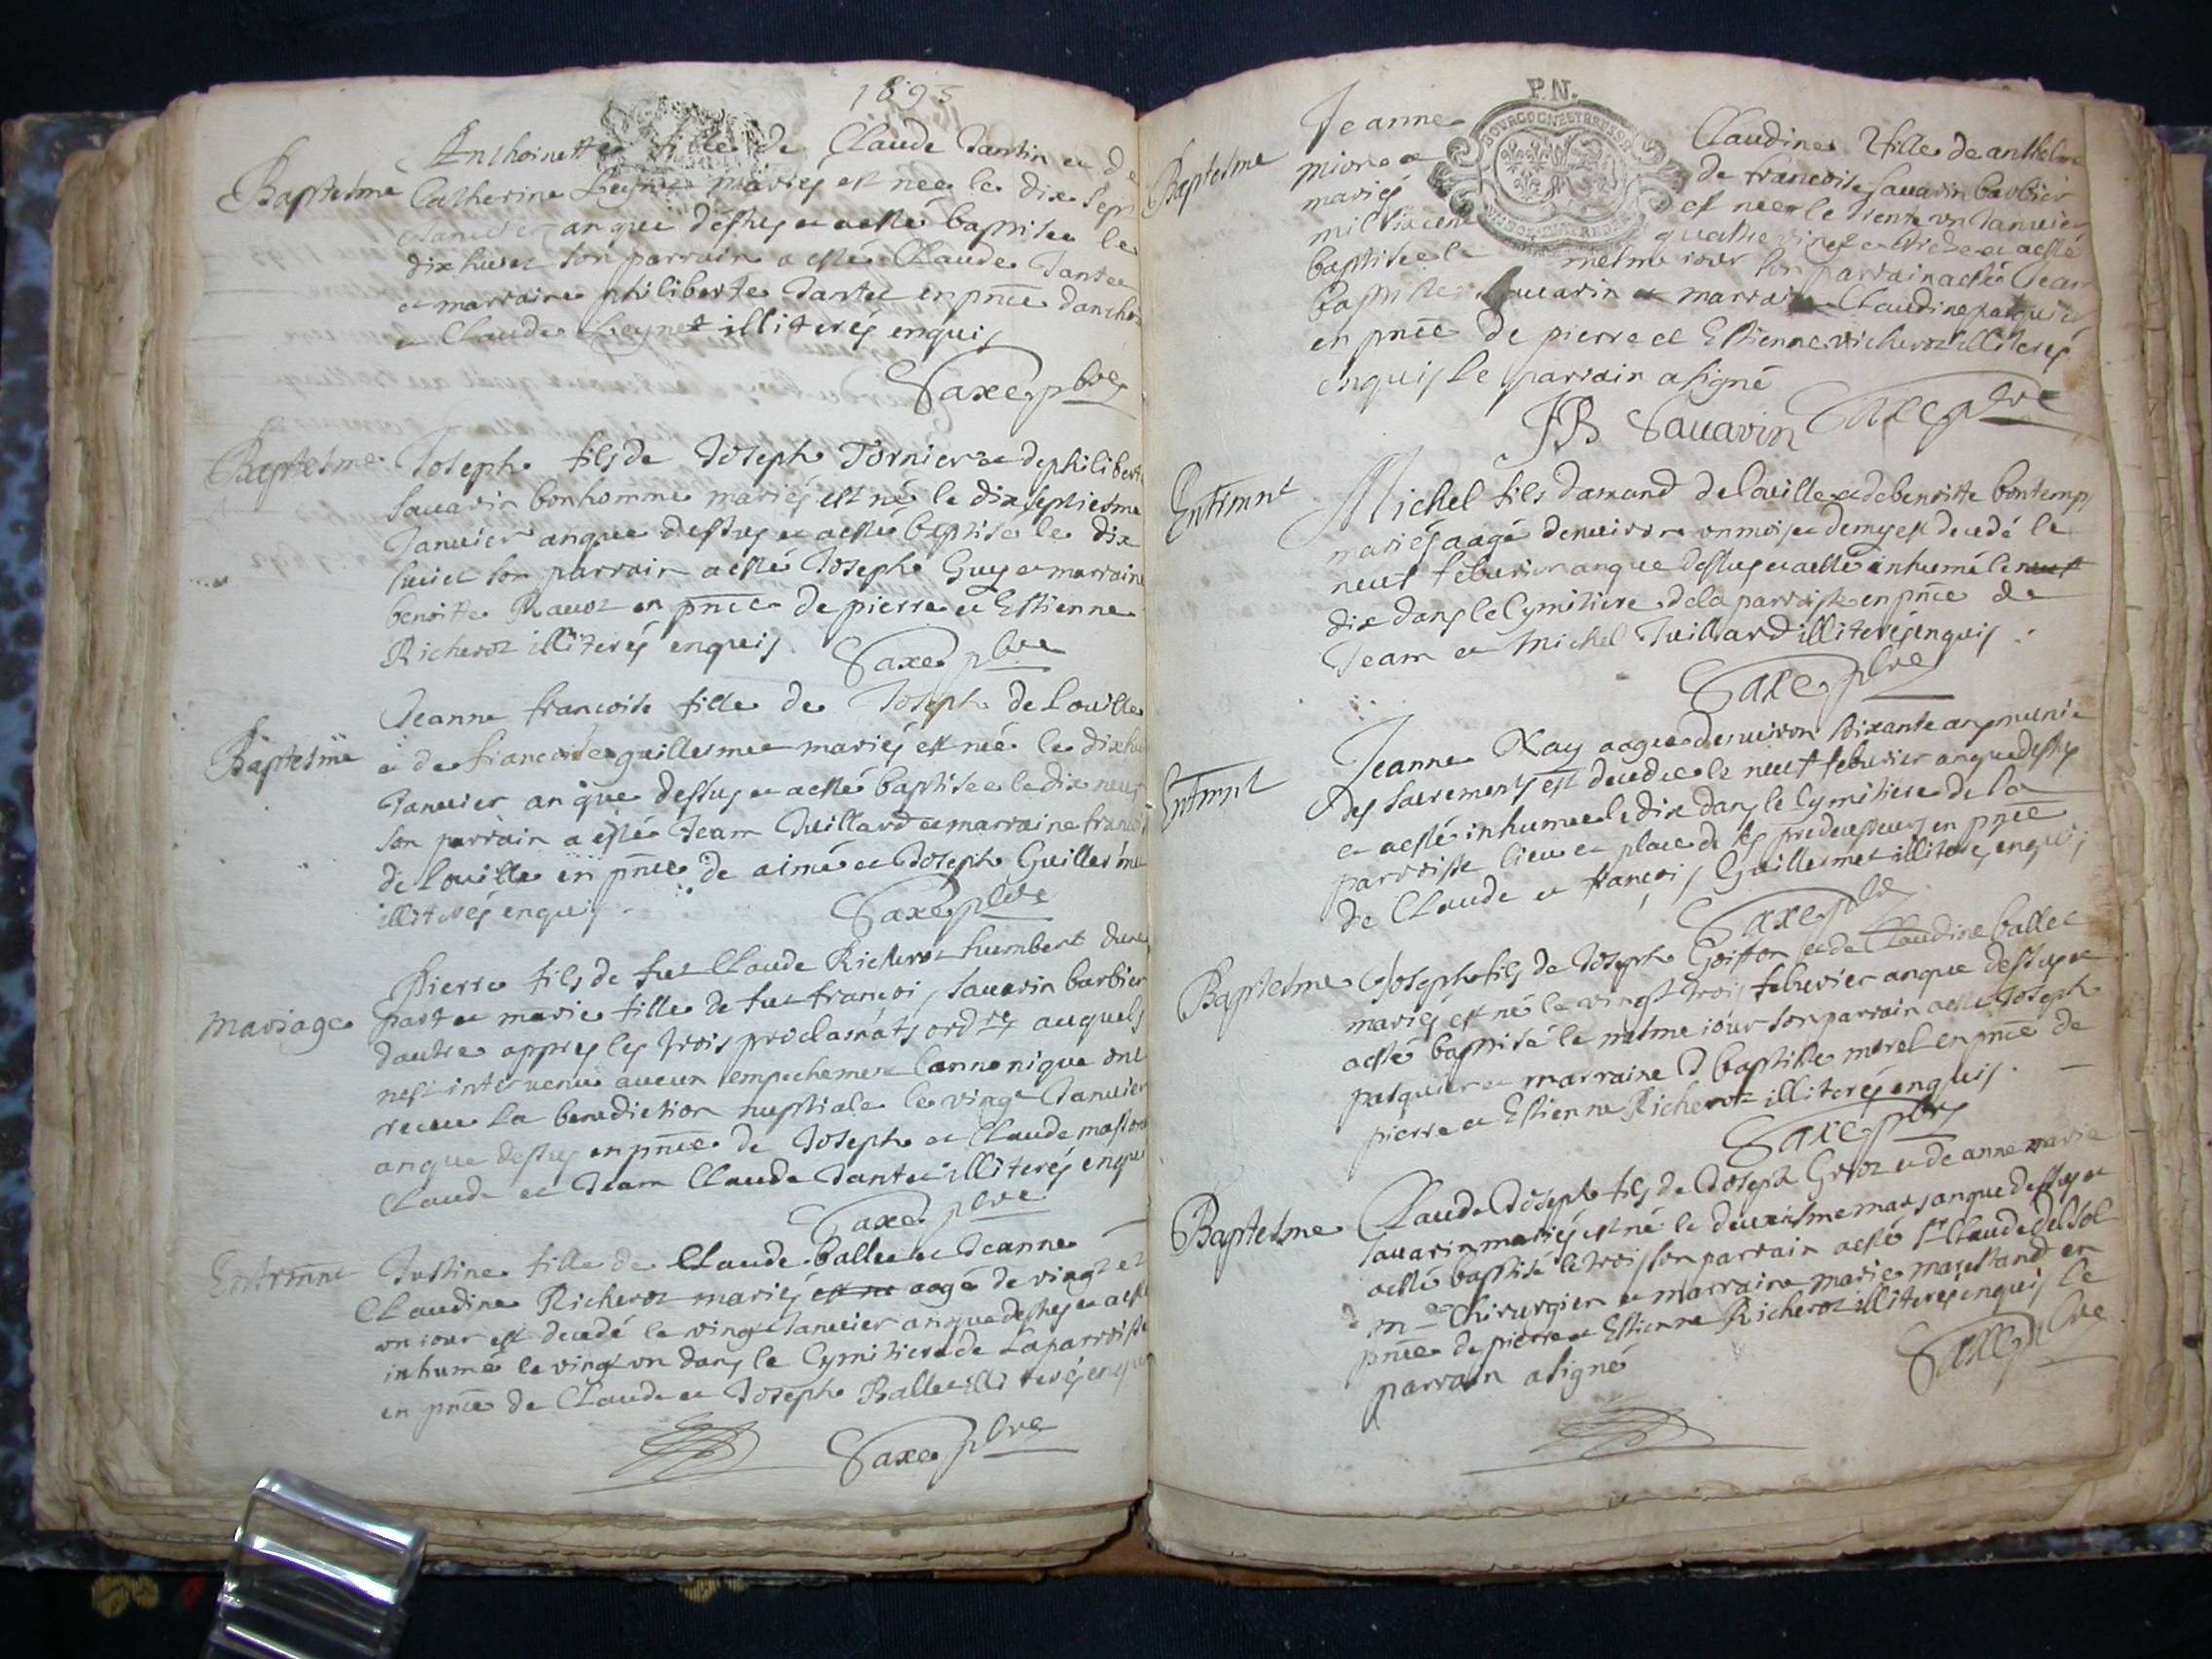 1695
Baptesme
Anthoinette fille de Claude Tantin et de
Catherine Leynet mariés est née le dix sept
Januier an que dessus et a esté baptisee le
dix huict son parrain a esté Claude Tantet
et marraine philiberte Tantet en pnce danthoi
et Claude Leynet illiterés enquis
Saxe pbre
Baptesme
Joseph fils de Joseph Tornier et de philiberte
Sauarin bonhomme mariés est né le dix septiesme
Januier an que dessus et a esté baptisé le dix
huict son parrain a esté Joseph Guy et marraine
benoitte Rauoz en pnce de pierre et Estienne
Richeroz illiterés enquis
Saxe pbre
Baptesme
Jeanne francoise fille de Joseph de Louille
et de francoise guillermet mariés est née le dix hui
Januier an que dessus et a esté baptisee le dix neuf
son parrain a esté Jean Juillard et marraine francoi
de Louille en pnce de aimé et Joseph Guillerme
illiterés enquis
Saxe pbre
Mariage
Pierre fils de fut Claude Richeroz humbert dune
part et marie fille de fut francois Sauarin barbier
dautre appres les trois proclamats ordres auquels
nest interuenu aucun empechement cannonique ont
receu la benediction nuptiale le vingt Januier
an que dessus en pnce de Joseph et Claude
Claude et Jean Claude Tantet illiterés enquis
Saxe pbre
Entrmnt
Justine fille de Claude Ballet et Jeanne
Claudine Richeroz mariés est ne aagé de vingt et
un iour est decedé le vingt Januier an que dessus et a esté
inhumé le vingt un dans le Cymitiere de La parroisse
en pnce de Claude et Joseph Ballet illiterés enquis
Saxe pbre
P.N.
BOURGOGNE ET BRESSE
Baptesme
Jeanne Claudine fille de anthelme
mione et de francoise Sauarin barbier
mariés est nee le trente un Januier
mil six cent quatre vingt et a esté
baptisee le mesme iour son parrain a esté Jean
baptiste Sauarin et marraine Claudine pasquier
en pnce de pierre et Estienne richeroz illiterés
enquis le parrain a signé
JB Sauarin Saxe pbre
Entrmnt
Michel fils damand de Louille et de benoitte bontemps
mariés aagé denuiron un mois et demy est decedé le
neuf feburier an que dessus et a esté inhumé le neuf
dix dans le Cymitiere de la parroisse en pnce de
Jean et Michel Juillard illiterés enquis
Saxe pbre
Entrmnt
Jeanne Nay aagee denuiron soixante ans munie
des sacrements est decedee le neuf feburier an que dessus
et a esté inhumee le dix dans le Cymitiere de la
parroisse lieu et place de ses predecesseurs en pnce
de Claude et francois Guillermet illiterés enquis
Saxe pbre
Baptesme
Joseph fils de Joseph Goiffon et de Claudine ballet
mariés est né le vingt trois feburier an que dessus et
a esté baptisé le mesme iour son parrain a esté Joseph
pasquier et marraine J baptiste morel en pnce de
pierre et Estienne Richeroz illiterés enquis
Saxe pbre
Baptesme
Claude Joseph fils de Joseph Groz et de anne marie
Sauarin mariés est né le deuxiesme mars an que dessus et
a esté baptisé le trois son parrain a esté Sr Claude Delsol
me Chirurgien et marraine marie marestand en
pnce de pierre et Estienne Richeroz illiterés enquis le
parrain a signé
Saxe pbre